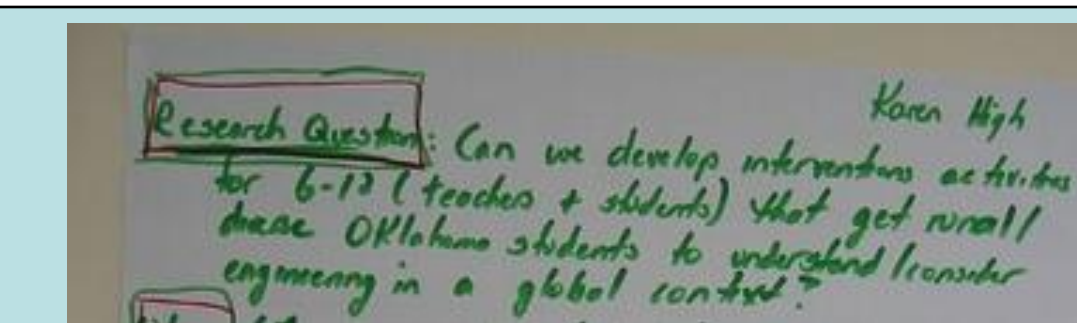 Karen High
Research Question: Can we develop interventions activities
for 6-12 (teachers + students) that get rural/
diverse Oklahoma students to understand/consider
engineering in a global context?